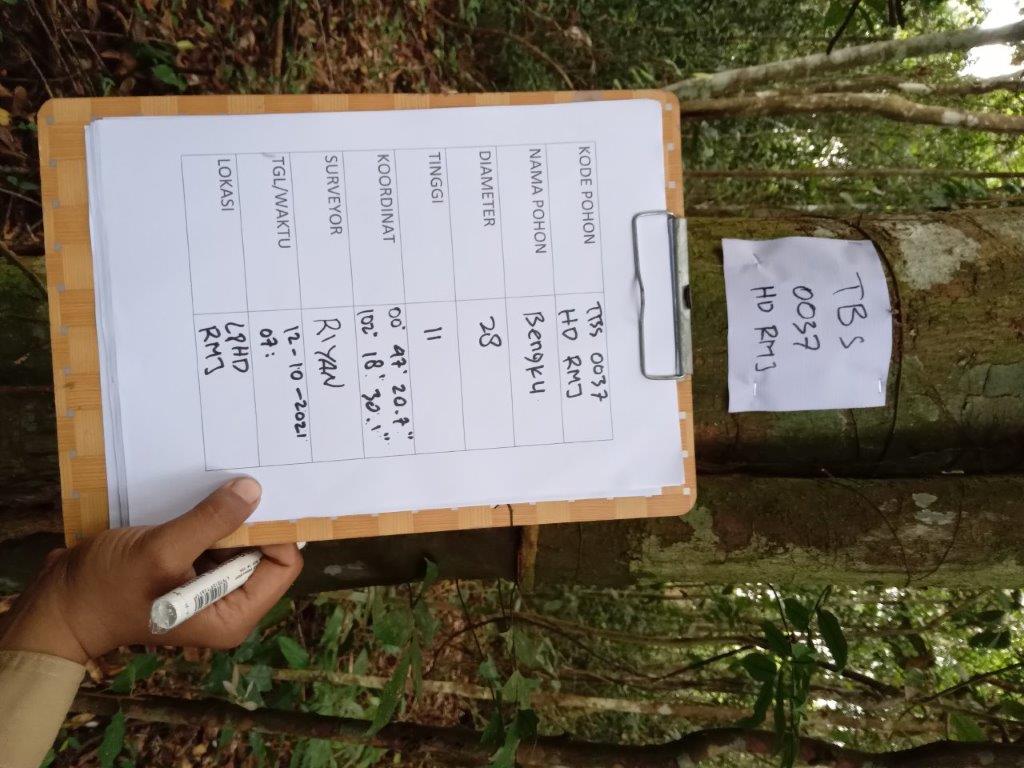 KODE POHON TBS 0037
HD RMJ
NAMA POHON Bengku
DIAMETER 28
TINGGI 11
KOORDINAT 00° 47' 20.7"
102° 18' 30.1"
SURVEYOR RIYAN
TGL/WAKTU 12-10-2021
07:
LOKASI LPHD
RMJ
TBS
0037
HD RMJ